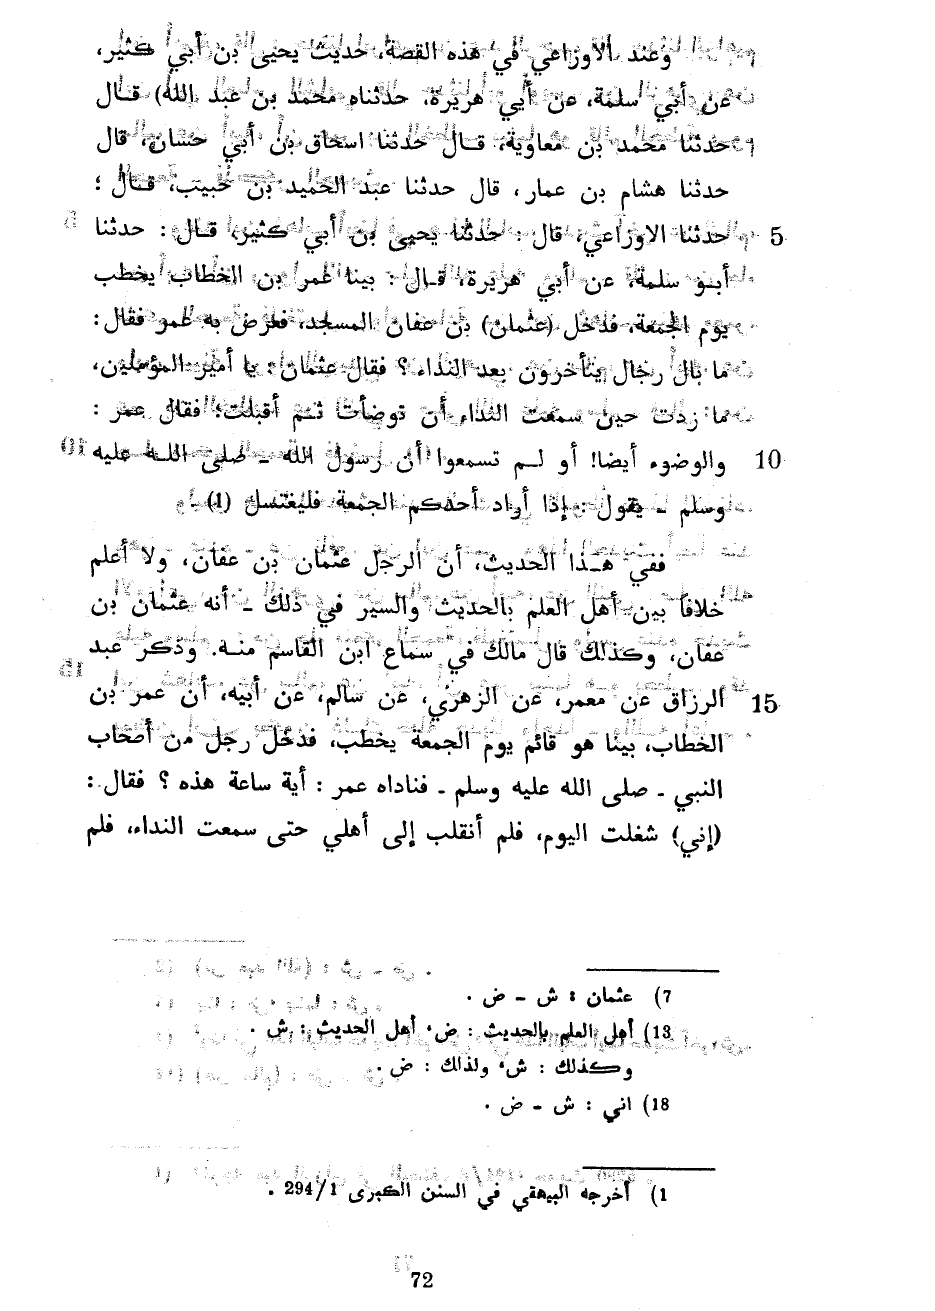 وعند الاوزاعي في هذه القصة، حديث يحيى بن أبي كثير،
عن أبي سلمة، عن أبي هريرة، حدثناه محمد بن عبد الله) قال
حدثنا محمد بن معاوية، قال حدثنا اسحاق بن أبي حسان، قال
حدثنا هشام بن عمار، قال حدثنا عبد الحميد بن حبيب، قال :
5 حدثنا الاوزاعي، قال : حدثنا يحيى بن أبي كثير، قال : حدثنا
أبو سلمة، عن أبي هريرة، قال : بينا عمر بن الخطاب يخطب
يوم الجمعة، فدخل (عثمان) بن عفان المسجد، فعرض به عمر فقال :
ما بال رجال يتأخرون بعد النداء ؟ فقال عثمان : يا أمير المؤمنين،
ما زدت حين سمعت النداء أن توضأت ثم أقبلت؛ فقال عمر :
10 والوضوء أيضا! أو لم تسمعوا أن رسول الله - صلى الله عليه
وسلم - يقول : إذا أراد أحدكم الجمعة فليغتسل (1).
ففي هذا الحديث، أن الرجل عثمان بن عفان، ولا أعلم
خلافا بين أهل العلم بالحديث والسير في ذلك - أنه عثمان بن
عفان، وكذلك قال مالك في سماع ابن القاسم منه. وذكر عبد
15 الرزاق عن معمر، عن الزهري، عن سالم، عن أبيه، أن عمر بن
الخطاب، بينا هو قائم يوم الجمعة يخطب، فدخل رجل من أصحاب
النبي - صلى الله عليه وسلم - فناداه عمر : أية ساعة هذه ؟ فقال :
(إني) شغلت اليوم، فلم أنقلب إلى أهلي حتى سمعت النداء، فلم
7) عثمان : ش - ض .
13) أهل العلم بالحديث : ض، أهل الحديث : ش .
وكذلك : ش، ولذلك : ض .
18) اني : ش - ض .
1) أخرجه البيهقي في السنن الكبرى 294/1 .
72